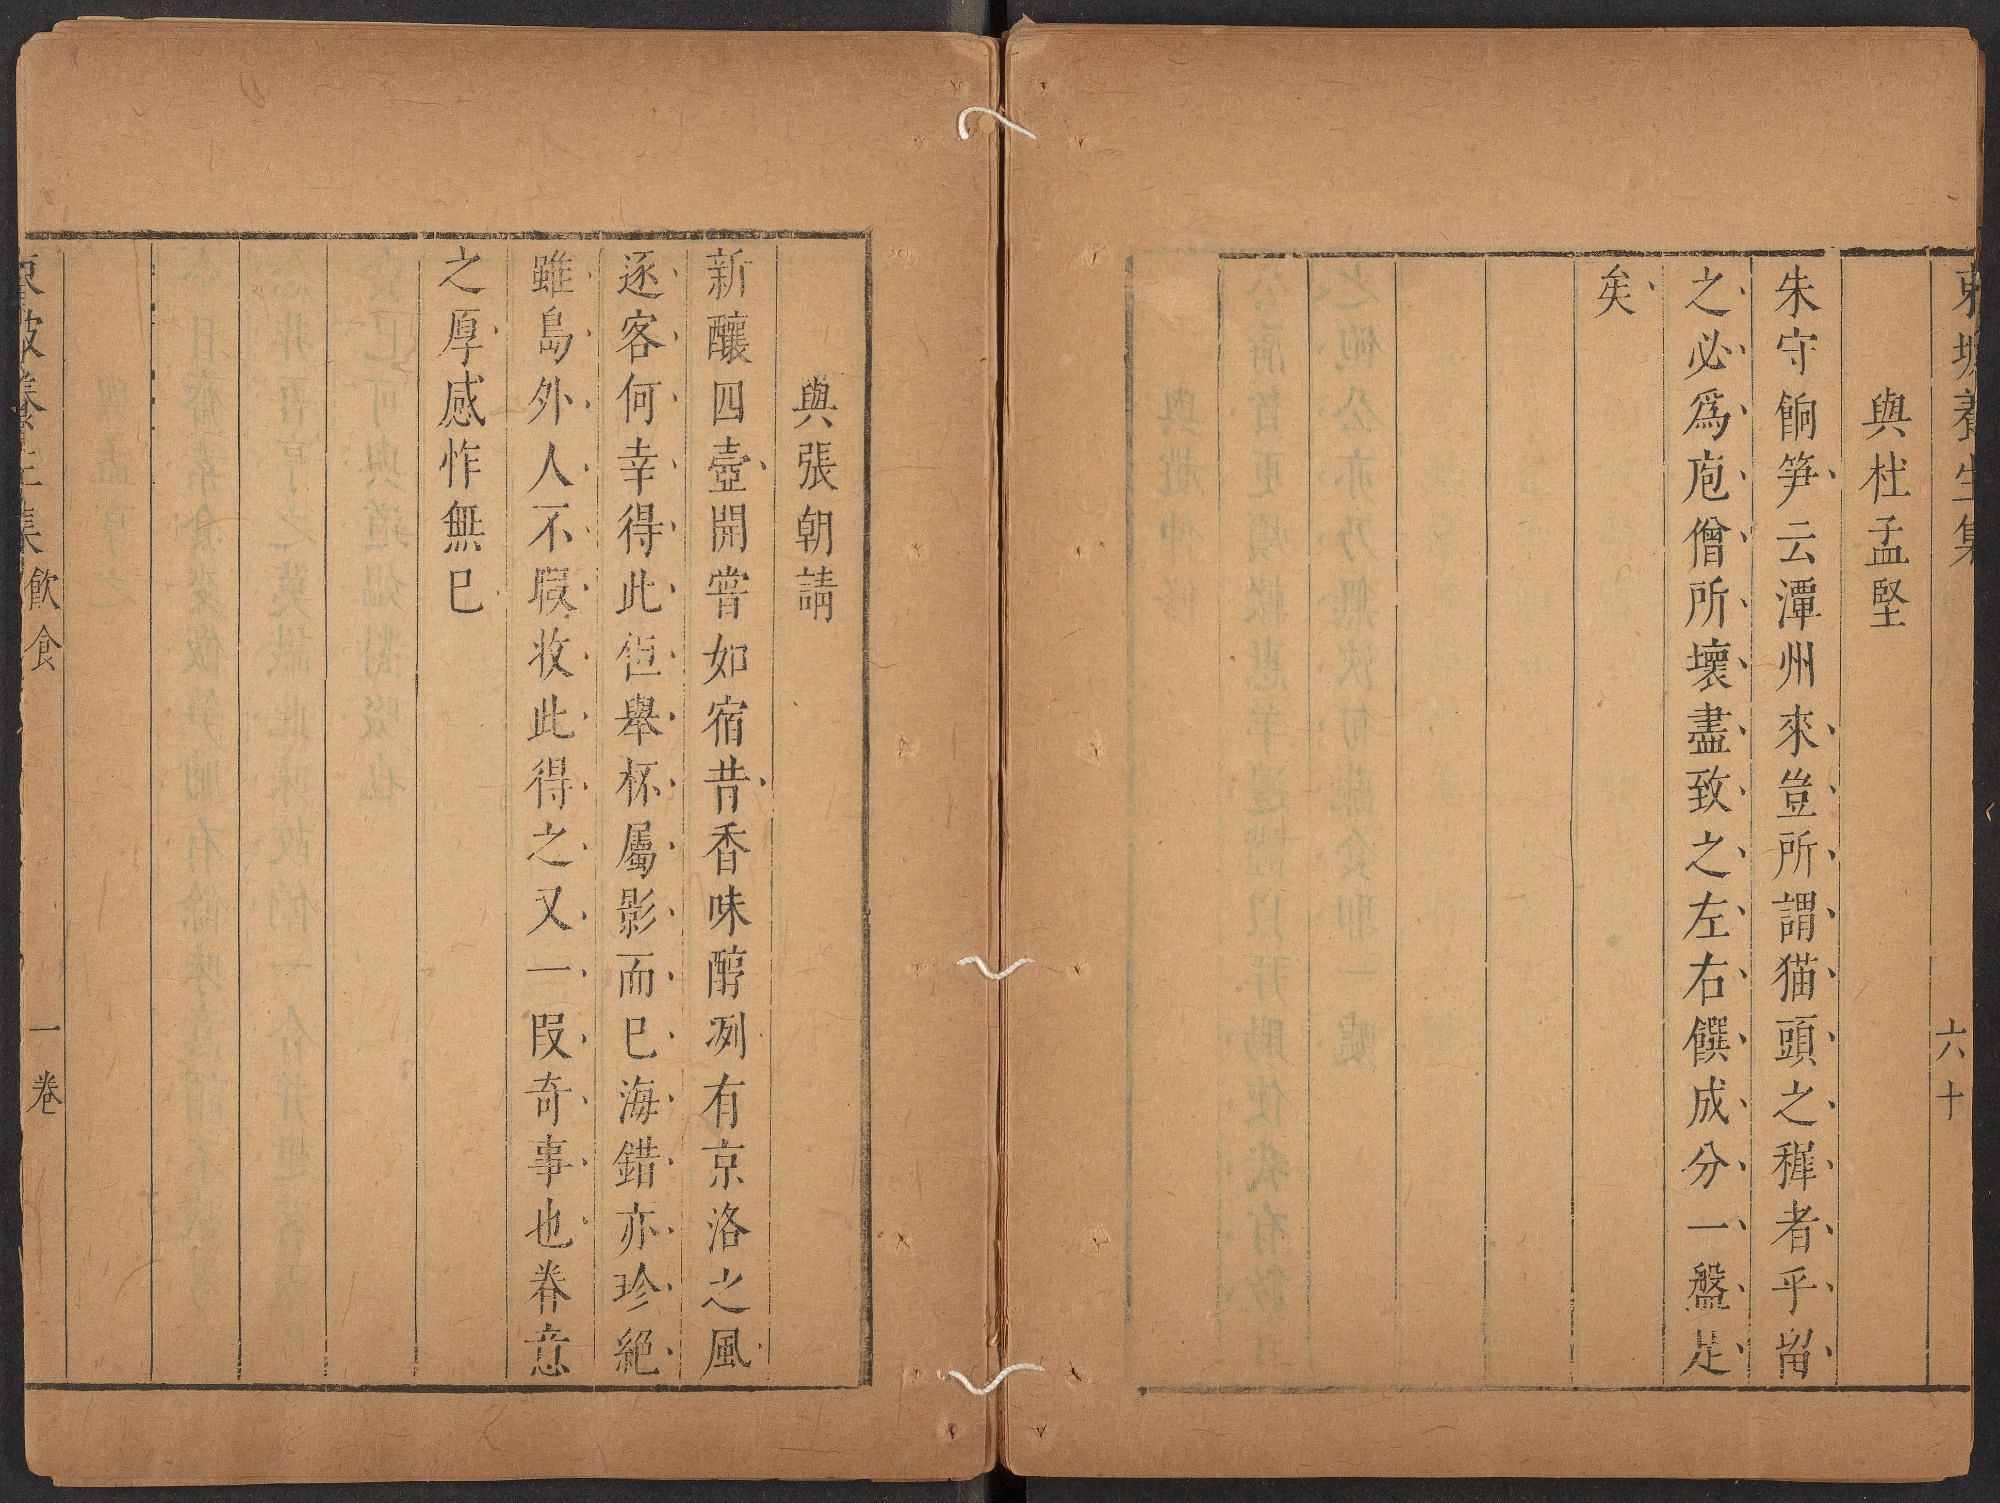 東坡養生集
六十
與杜孟堅
朱守餉笋云潭州來豈所謂猫頭之穉者乎留
之必爲庖僧所壞盡致之左右饌成分一盤足
矣
與張朝請
新釀四壺開嘗如宿昔香味醇冽有京洛之風
逐客何幸得此但舉杯屬影而已海錯亦珍絕
雖島外人不暇收此得之又一段奇事也眷意
之厚感怍無已
東坡養生集
飲食
一卷